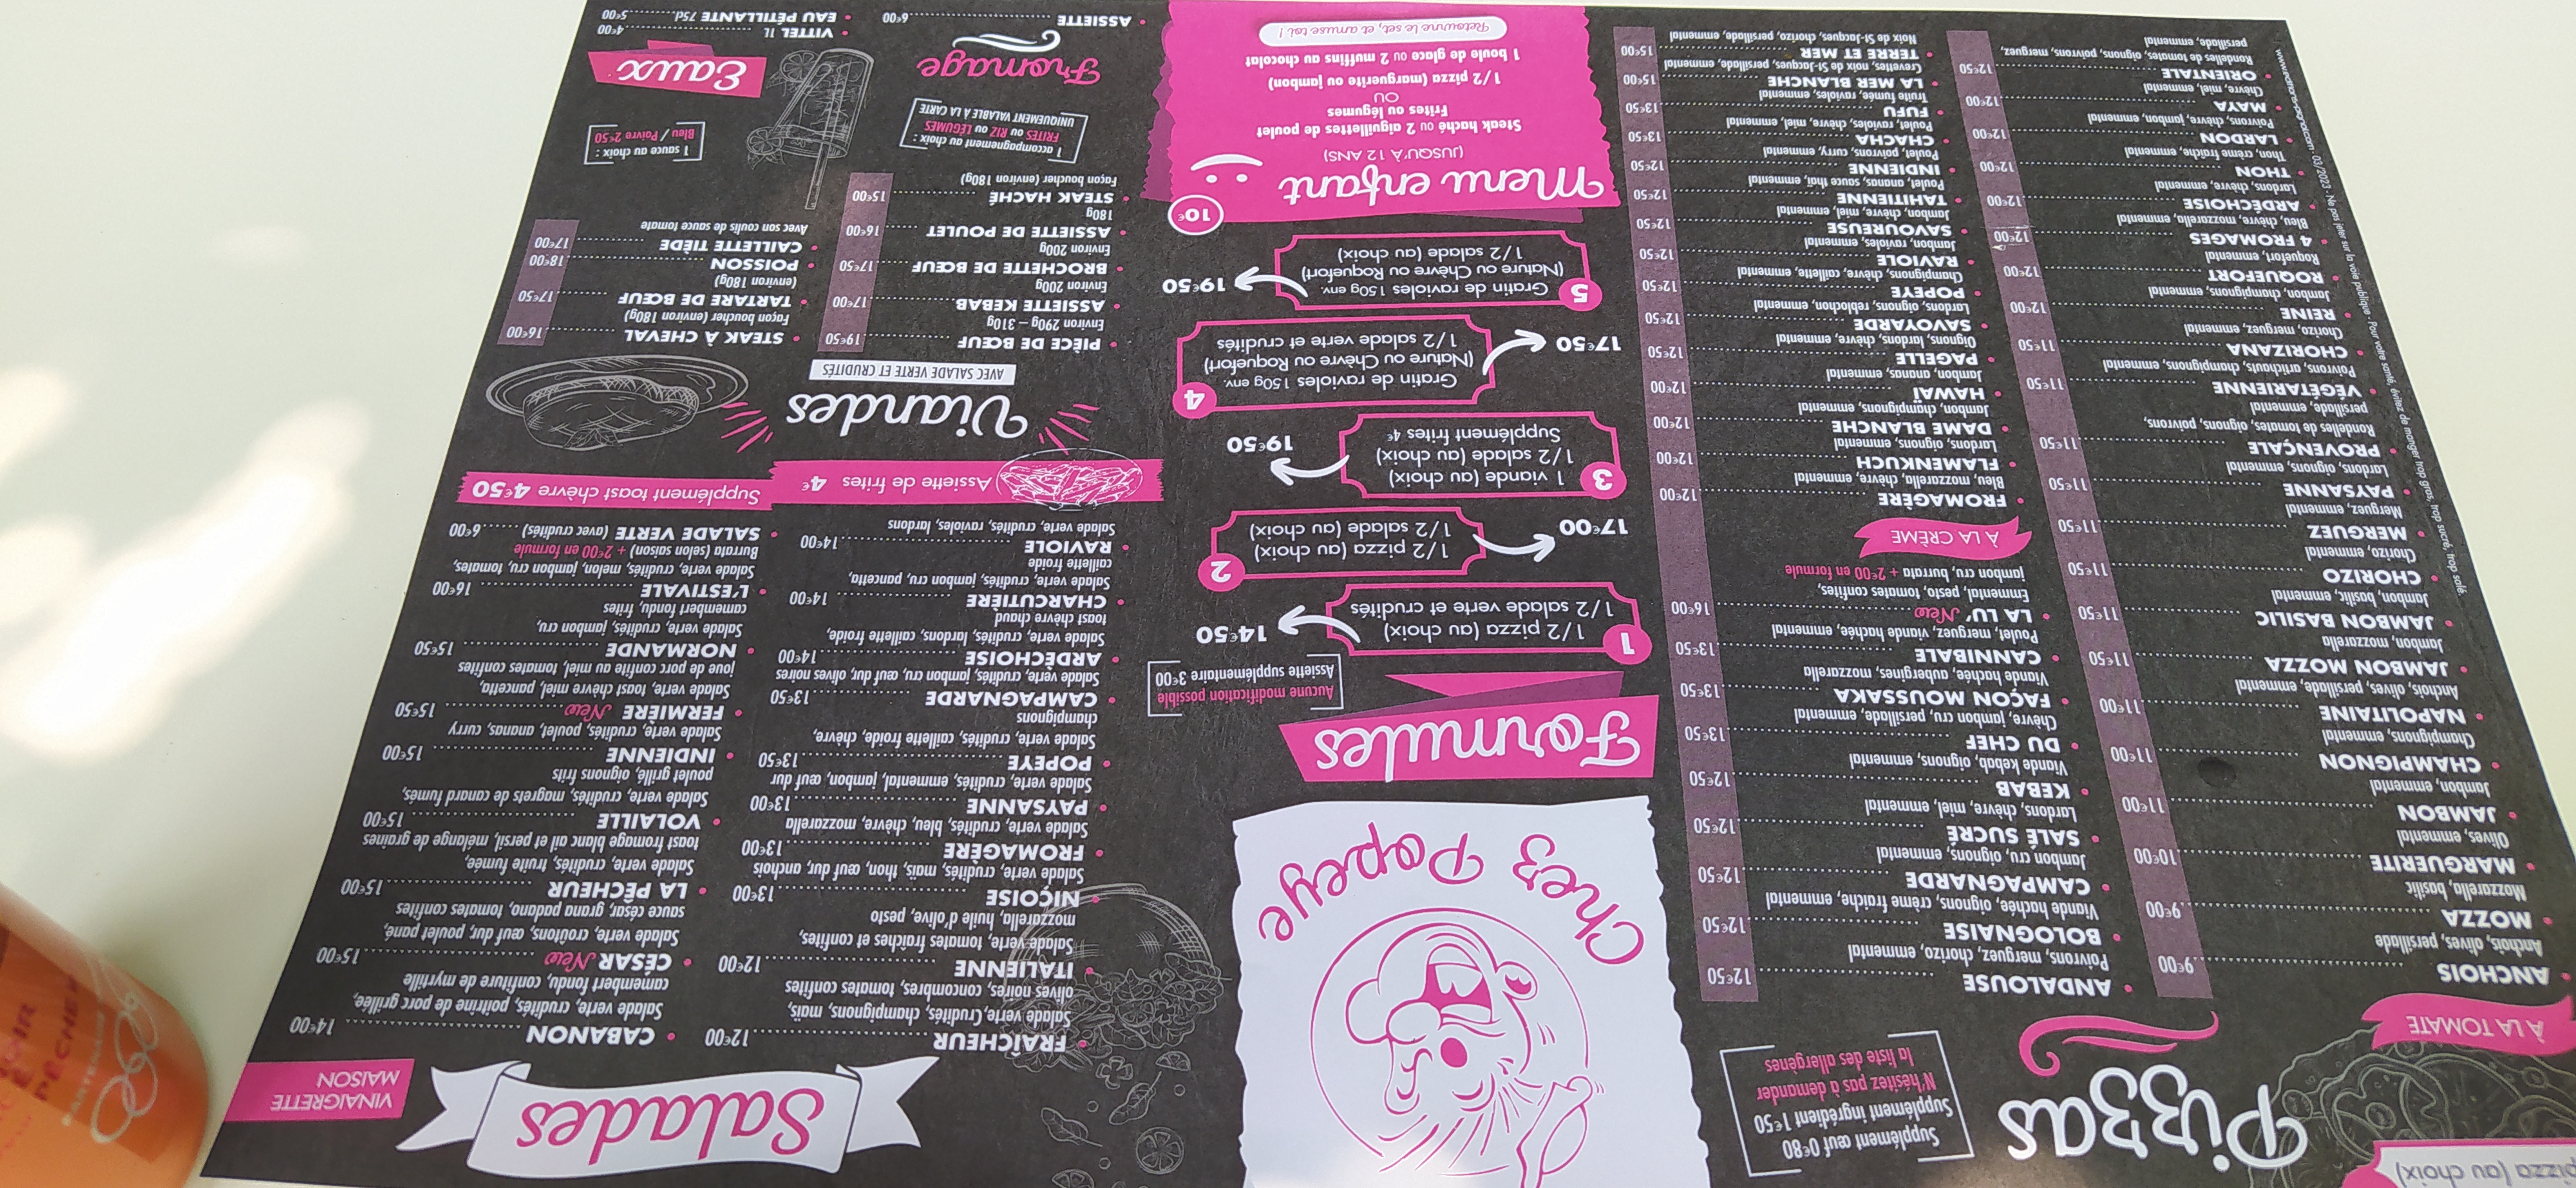 pizza (au choix)
Pizzas
Supplément œuf 0€80
Supplément ingrédient 1€50
N'hésitez pas à demander
la liste des allergènes
À LA TOMATE
ANCHOIS 9€00
Anchois, olives, persillade
MOZZA 9€00
Mozzarella, basilic
MARGUERITE 10€00
Olives, emmental
JAMBON 11€00
Jambon, emmental
CHAMPIGNON 11€00
Champignons, emmental
NAPOLITAINE 11€00
Anchois, olives, persillade, emmental
JAMBON MOZZA 11€50
Jambon, mozzarella
JAMBON BASILIC 11€50
Jambon, basilic, emmental
CHORIZO 11€50
Chorizo, emmental
MERGUEZ 11€50
Merguez, emmental
PAYSANNE 11€50
Lardons, oignons, emmental
PROVENÇALE 11€50
Rondelles de tomates, oignons, poivrons,
persillade, emmental
VÉGÉTARIENNE 11€50
Poivrons, artichauts, champignons, emmental
CHORIZANA 11€50
Chorizo, merguez, emmental
REINE 12€00
Jambon, champignons, emmental
ROQUEFORT 12€00
Roquefort, emmental
4 FROMAGES 12€00
Bleu, chèvre, mozzarella, emmental
ARDÉCHOISE 12€00
Lardons, chèvre, emmental
THON 12€00
Thon, crème fraiche, emmental
LARDON 12€00
Poivrons, chèvre, jambon, emmental
MAYA 12€00
Chèvre, miel, emmental
ORIENTALE 12€50
Rondelles de tomates, oignons, poivrons, merguez,
persillade, emmental
ANDALOUSE 12€50
Poivrons, merguez, chorizo, emmental
BOLOGNAISE 12€50
Viande hachée, oignons, crème fraiche, emmental
CAMPAGNARDE 12€50
Jambon cru, oignons, emmental
SALÉ SUCRÉ 12€50
Lardons, chèvre, miel, emmental
KEBAB 12€50
Viande kebab, oignons, emmental
DU CHEF 13€50
Chèvre, jambon cru, persillade, emmental
FAÇON MOUSSAKA 13€50
Viande hachée, aubergines, mozzarella
CANNIBALE 13€50
Poulet, merguez, viande hachée, emmental
LA LU' New 16€00
Emmental, pesto, tomates confites,
jambon cru, burrata + 2€00 en formule
À LA CRÈME
FROMAGÈRE 12€00
Bleu, mozzarella, chèvre, emmental
FLAMENKUCH 12€00
Lardons, oignons, emmental
DAME BLANCHE 12€00
Jambon, champignons, emmental
HAWAÏ 12€00
Jambon, ananas, emmental
PAGELLE 12€50
Oignons, lardons, chèvre, emmental
SAVOYARDE 12€50
Lardons, oignons, reblochon, emmental
POPEYE 12€50
Champignons, chèvre, caillette, emmental
RAVIOLE 12€50
Jambon, ravioles, emmental
SAVOUREUSE 12€50
Jambon, chèvre, miel, emmental
TAHITIENNE 12€50
Poulet, ananas, sauce thaï, emmental
INDIENNE 12€50
Poulet, poivrons, curry, emmental
CHACHA 13€50
Poulet, ravioles, chèvre, miel, emmental
FUFU 13€50
Truite fumée, ravioles, emmental
LA MER BLANCHE 15€00
Crevettes, noix de St-Jacques, persillade, emmental
TERRE ET MER 15€00
Noix de St-Jacques, chorizo, persillade, emmental
03/2023 - Ne pas jeter sur la voie publique - Pour votre santé, évitez de manger trop gras, trop sucré, trop salé
Chez Popeye
Formules
Aucune modification possible
Assiette supplémentaire 3€00
1
1/2 pizza (au choix)
1/2 salade verte et crudités
14€50
2
1/2 pizza (au choix)
1/2 salade (au choix)
17€00
3
1 viande (au choix)
1/2 salade (au choix)
Supplément frites 4€
19€50
4
Gratin de ravioles 150g env.
(Nature ou Chèvre ou Roquefort)
1/2 salade verte et crudités
17€50
5
Gratin de ravioles 150g env.
(Nature ou Chèvre ou Roquefort)
1/2 salade (au choix)
19€50
Menu enfant
10€
(JUSQU'À 12 ANS)
Steak haché ou 2 aiguillettes de poulet
Frites ou légumes
OU
1/2 pizza (marguerite ou jambon)
1 boule de glace ou 2 muffins au chocolat
Retourne le set, et amuse toi !
Salades
VINAIGRETTE
MAISON
FRAÎCHEUR 12€00
Salade verte, Crudités, champignons, maïs,
olives noires, concombres, tomates confites
ITALIENNE 12€00
Salade verte, tomates fraîches et confites,
mozzarella, huile d'olive, pesto
NIÇOISE 13€00
Salade verte, crudités, maïs, thon, œuf dur, anchois
FROMAGÈRE 13€00
Salade verte, crudités, bleu, chèvre, mozzarella
PAYSANNE 13€00
Salade verte, crudités, emmental, jambon, œuf dur
POPEYE 13€50
Salade verte, crudités, caillette froide, chèvre,
champignons
CAMPAGNARDE 13€50
Salade verte, crudités, jambon cru, œuf dur, olives noires
ARDÉCHOISE 14€00
Salade verte, crudités, lardons, caillette froide,
toast chèvre chaud
CHARCUTIÈRE 14€00
Salade verte, crudités, jambon cru, pancetta,
caillette froide
RAVIOLE 14€00
Salade verte, crudités, ravioles, lardons
CABANON 14€00
Salade verte, crudités, poitrine de porc grillée,
camembert fondu, confiture de myrtille
CÉSAR New 15€00
Salade verte, croûtons, œuf dur, poulet pané,
sauce césar, grana padano, tomates confites
LA PÊCHEUR 15€00
Salade verte, crudités, truite fumée,
toast fromage blanc ail et persil, mélange de graines
VOLAILLE 15€00
Salade verte, crudités, magrets de canard fumés,
poulet grillé, oignons frits
INDIENNE 15€00
Salade verte, crudités, poulet, ananas, curry
FERMIÈRE New 15€50
Salade verte, toast chèvre miel, pancetta,
joue de porc confite au miel, tomates confites
NORMANDE 15€50
Salade verte, crudités, jambon cru,
camembert fondu, frites
L'ESTIVALE 16€00
Salade verte, crudités, melon, jambon cru, tomates,
Burrata (selon saison) + 2€00 en formule
SALADE VERTE (avec crudités) 6€00
Assiette de frites 4€
Supplément toast chèvre 4€50
Viandes
AVEC SALADE VERTE ET CRUDITÉS
PIÈCE DE BŒUF 19€50
Environ 290g – 310g
ASSIETTE KEBAB 17€00
Environ 200g
BROCHETTE DE BŒUF 17€50
Environ 200g
ASSIETTE DE POULET 16€00
180g
STEAK HACHÉ 15€00
Façon boucher (environ 180g)
STEAK À CHEVAL 16€00
Façon boucher (environ 180g)
TARTARE DE BŒUF 17€50
(environ 180g)
POISSON 18€00
CAILLETTE TIÈDE 17€00
Avec son coulis de sauce tomate
1 accompagnement au choix :
FRITES ou RIZ ou LÉGUMES
UNIQUEMENT VALABLE À LA CARTE
1 sauce au choix :
Bleu / Poivre 2€50
Fromage
ASSIETTE 6€00
Eaux
VITTEL 1L 4€00
EAU PÉTILLANTE 75cl 5€00
PÊCHE